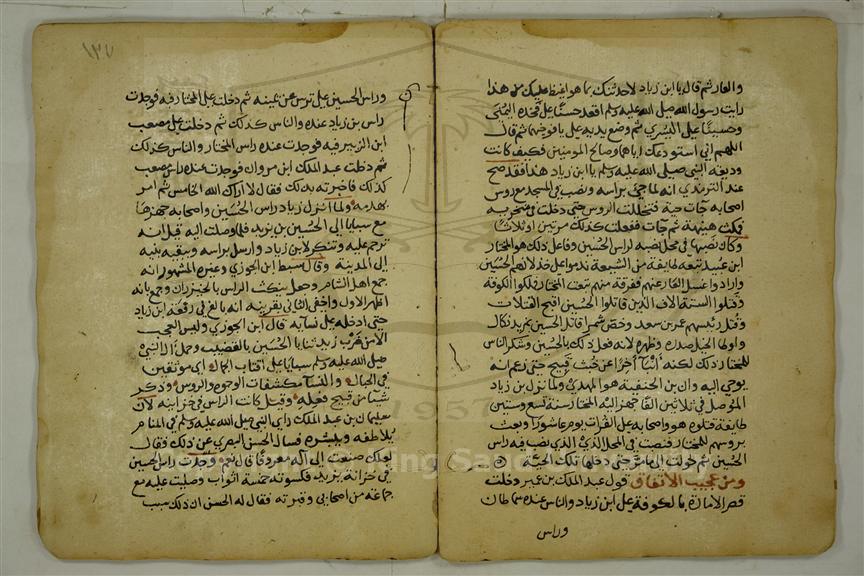 والعار ثم قال يا ابن زياد لاحدثنك بما هو اغيظ عليك من هذا
رايت رسول الله صلى الله عليه وسلم اقعد حسنا على فخذه اليمنى
وحسينا على اليسرى ثم وضع يديه على يافوخهما ثم قال
اللهم اني استودعك اياهما وصالح المومنين فكيف كانت
وديعة النبي صلى الله عليه وسلم يا ابن زياد هذا فقد صح
عند الترمذي انه لما جي براسه ونصب في المسجد مع روس
اصحابه جات حية فتخللت الروس حتى دخلت في منخريه
فمكث هنيهة ثم جات ففعلت كذلك مرتين او ثلاثا
وكان نصبها في محل نصبه لراس الحسين وفاعل ذلك هو المختار
ابن عبيد تبعه طايفة من الشيعة ندموا على خذلانهم الحسين
وارادوا غسل العار عنهم ففرقة منهم تبعت المختار فملكوا الكوفة
وقتلوا الستة الاف الذين قاتلوا الحسين اقبح القتلات
وقتل رئيسهم عمر بن سعد وخص شمر قاتل الحسين بمزيد نكال
واوطا الخيل صدره وظهره لانه فعل ذلك بالحسين وشكر الناس
للمختار ذلك لكنه انبا اخرا عن خبث قبيح حتى زعم انه
يوحى اليه وان بن الحنفية هو المهدي ولما نزل بن زياد
الموصل في ثلاثين الفا جهز اليه المختار سنة تسع وستين
طايفة قتلوه هو واصحابه على الفرات يوم عاشورا وبعث
بروسهم للمختار فنصبت في المحل الذي الذي نصب فيه راس
الحسين ثم حولت الى مامر حتى دخلها تلك الحية
ومن عجيب الاتفاق قول عبد الملك بن عمير دخلت
قصر الامارة بالكوفة على ابن زياد والناس عنده سماطان
وراس
١٣٧
وراس الحسين على ترس عن يمينه ثم دخلت على المختار فيه فوجدت
راس بن زياد عنده والناس كذلك ثم دخلت على مصعب
ابن الزبير فيه فوجدت عنده راس المختار والناس كذلك
ثم دخلت عبد الملك ابن مروان فوجدت عنده راس مصعب
كذلك فاخبرته بذلك فقال لا اراك الله الخامس ثم امر
بهدمه ولما انزل زياد راس الحسين واصحابه جهزها
مع سبايا ال الحسين بن يزيد فلما وصلت اليه قيل انه
ترحم عليه وتنكر لابن زياد وارسل براسه وببقية بنيه
الى المدينة وقال سبط ابن الجوزي وغيره المشهور انه
جمع اهل الشام وجعل ينكث الراس بالخيزران وجمع بانه
اظهر الاول واخفى الثاني بقرينة انه بالغ في رفعة ابن زياد
حتى ادخله على نسايه قال ابن الجوزي وليس العجب
الا من ضرب يزيد ثنايا الحسين بالقضيب وحمل ال النبي
صلى الله عليه وسلم سبايا على اقتاب الجمال اي موثقين
في الحبال والنسا مكشفات الوجوه والروس وذكر
شيا من قبيح فعله وقيل كانت الراس في خزاينه لان
سليمان بن عبد الملك راى النبي صلى الله عليه وسلم في المنام
يلاطفه ويبشره فسال الحسن البصري عن ذلك فقال
لعلك صنعت الى اله معروفا قال نعم وجدت راس الحسين
في خزانة يزيد فكسوته خمسة اثواب وصليت عليه مع
جماعة من اصحابي وقبرته فقال له الحسن ان ذلك سبب